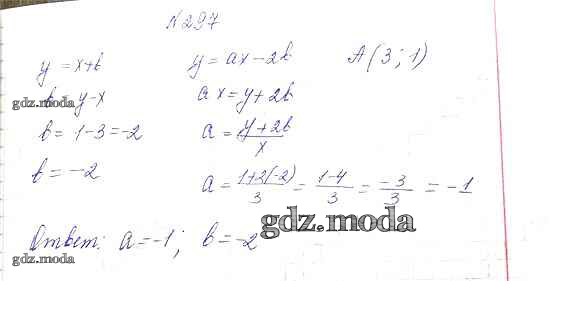 №297
y = x+b    y = ax-2b    A(3; 1)
b = y-x    ax = y+2b
b = 1-3 = -2    a = (y+2b)/x
b = -2    a = (1+2(-2))/3 = (1-4)/3 = -3/3 = -1
Ответ: a = -1; b = -2
gdz.moda
gdz.moda
gdz.moda